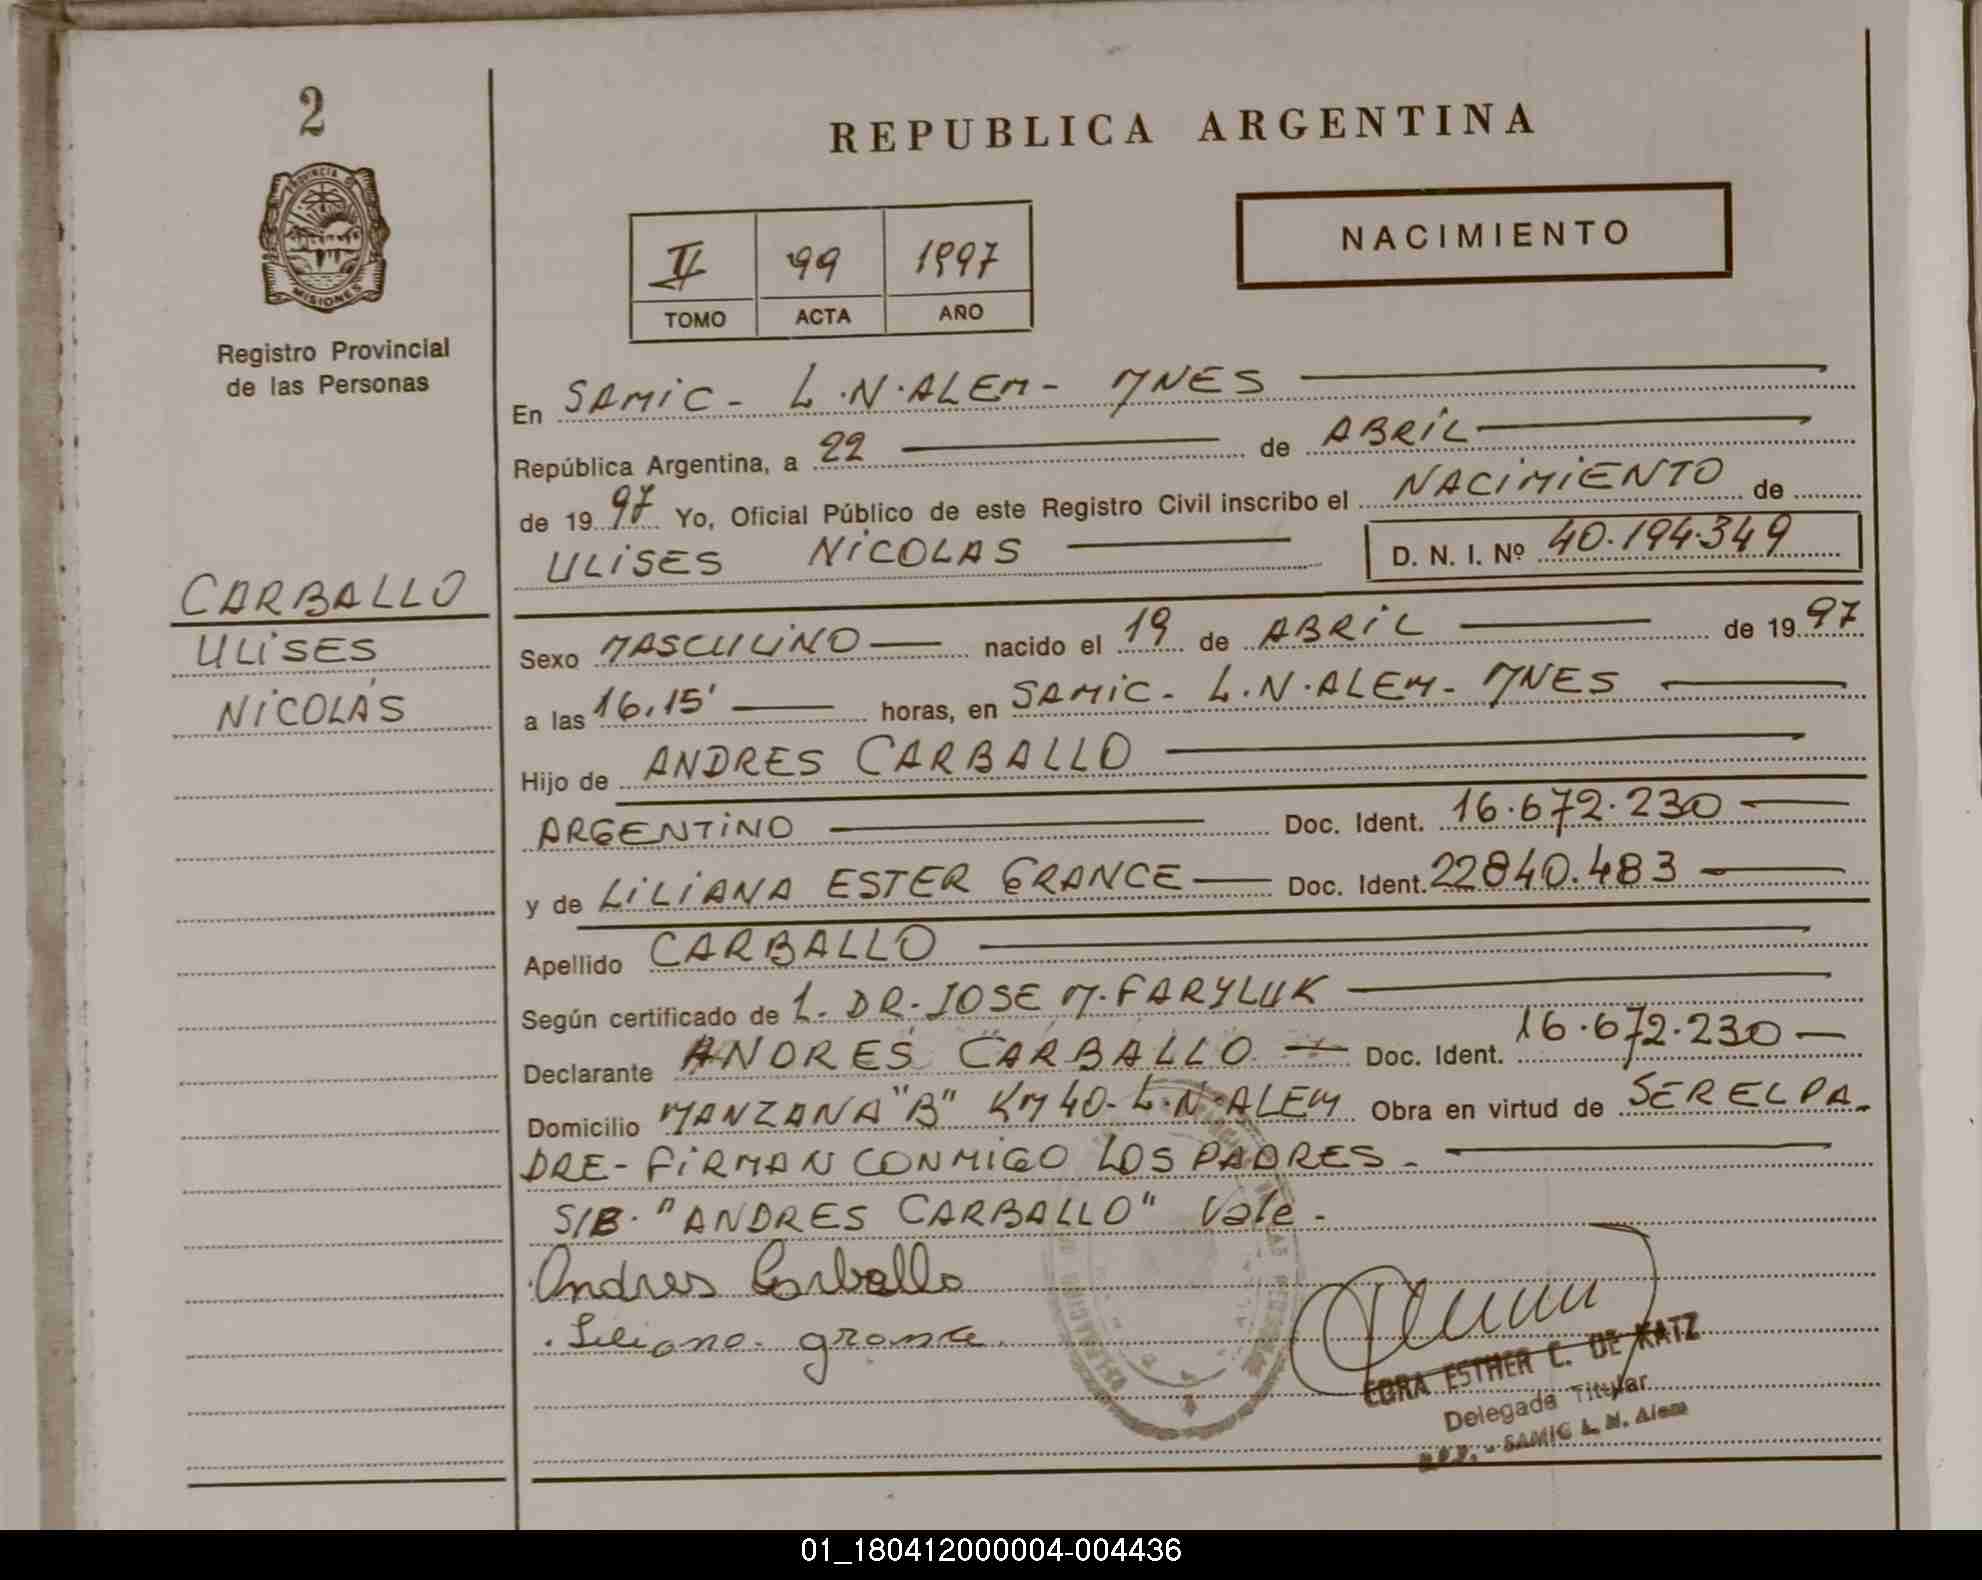 2
PROVINCIA DE
MISIONES
Registro Provincial
de las Personas
CARBALLO
ULISES
NICOLÁS
REPUBLICA ARGENTINA
II 99 1997
TOMO ACTA AÑO
NACIMIENTO
En SAMIC - L.N.ALEM - MNES
República Argentina, a 22 de ABRIL
de 1997 Yo, Oficial Público de este Registro Civil inscribo el NACIMIENTO de
ULISES NICOLAS D. N. I. Nº 40.194.349
Sexo MASCULINO nacido el 19 de ABRIL de 1997
a las 16,15' horas, en SAMIC - L.N.ALEM - MNES
Hijo de ANDRES CARBALLO
ARGENTINO Doc. Ident. 16.672.230
y de LILIANA ESTER GRANCE Doc. Ident. 22840.483
Apellido CARBALLO
Según certificado de L. DR. JOSE M. FARYLUK
Declarante ANDRES CARBALLO Doc. Ident. 16.672.230
Domicilio MANZANA "B" KM 40 - L.N.ALEM Obra en virtud de SER EL PA-
DRE - FIRMAN CONMIGO LOS PADRES -
S/B. "ANDRES CARBALLO" Vale -
Andres Carballo
Liliana grance
ESTHER C. DE KATZ
Delegada Titular
SAMIC L. N. Alem
01_180412000004-004436